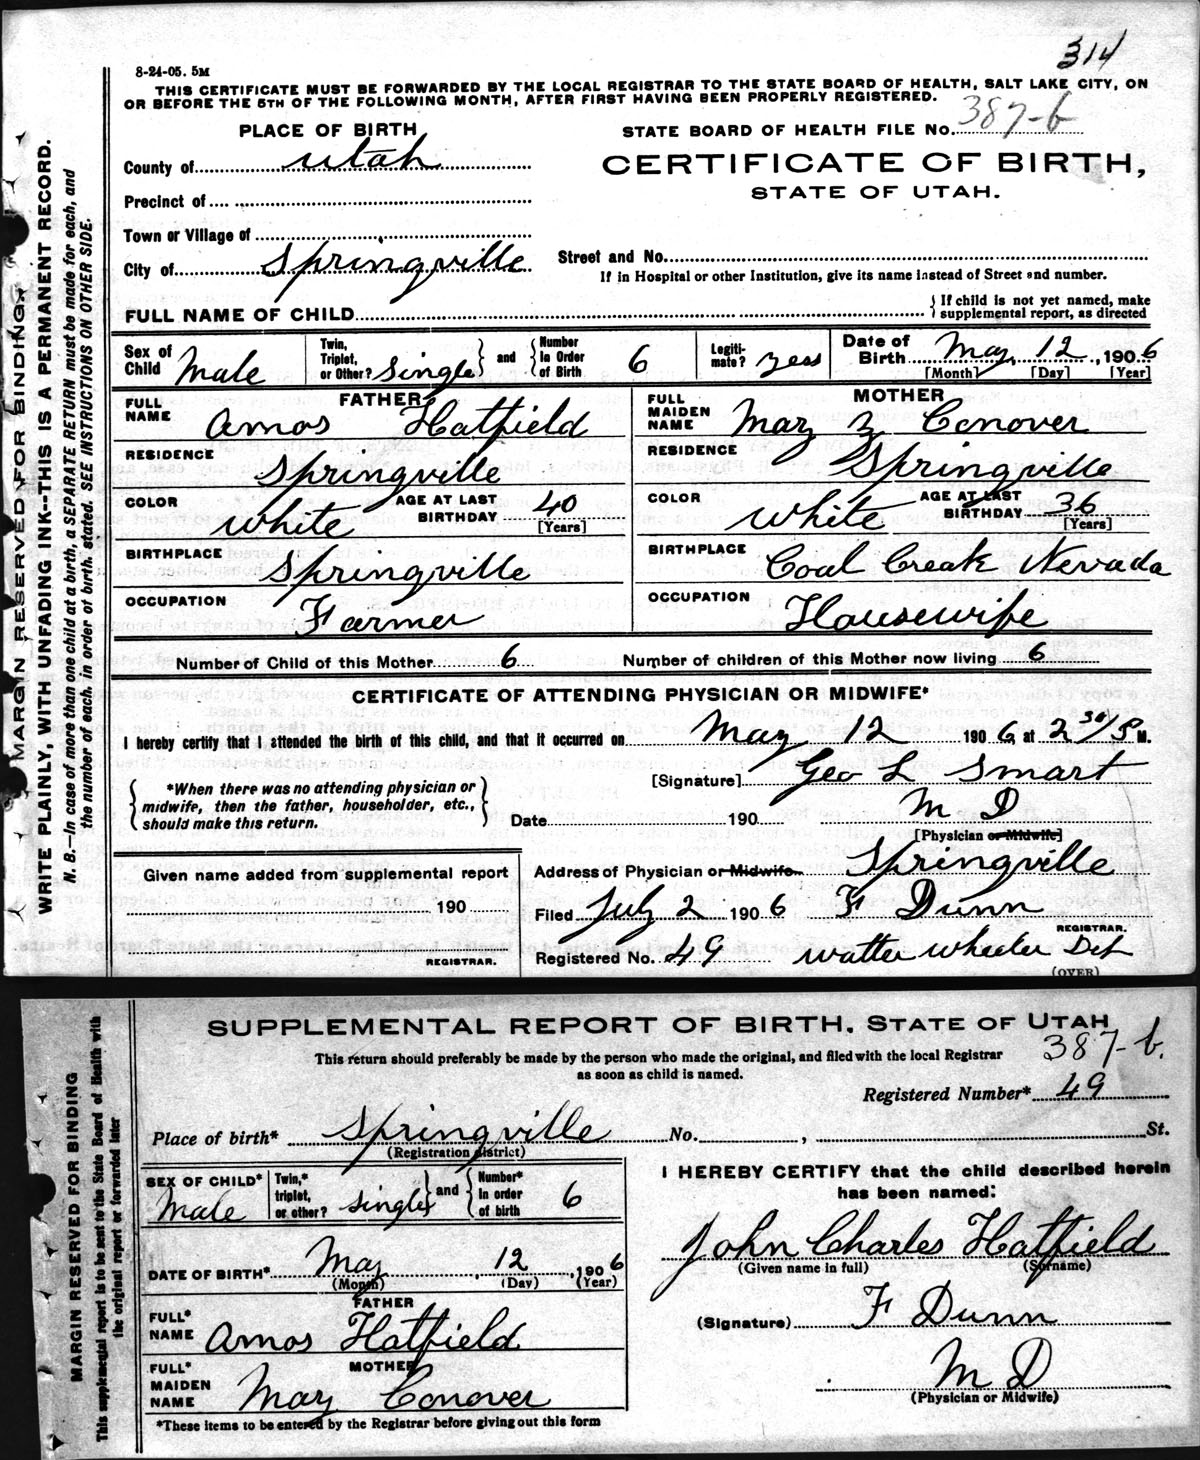 314
8-24-05. 5M
THIS CERTIFICATE MUST BE FORWARDED BY THE LOCAL REGISTRAR TO THE STATE BOARD OF HEALTH, SALT LAKE CITY, ON
OR BEFORE THE 5TH OF THE FOLLOWING MONTH, AFTER FIRST HAVING BEEN PROPERLY REGISTERED.
PLACE OF BIRTH
STATE BOARD OF HEALTH FILE No. 387-b
County of Utah
CERTIFICATE OF BIRTH,
STATE OF UTAH.
Precinct of
Town or Village of
City of Springville
Street and No.
If in Hospital or other Institution, give its name instead of Street and number.
FULL NAME OF CHILD
{ If child is not yet named, make
supplemental report, as directed
Sex of Child Male
Twin, Triplet, or Other? Single } and { Number in Order of Birth 6
Legitimate? yes
Date of Birth May 12, 1906
[Month] [Day] [Year]
FATHER
FULL NAME Amos Hatfield
RESIDENCE Springville
COLOR White AGE AT LAST BIRTHDAY 40
[Years]
BIRTHPLACE Springville
OCCUPATION Farmer
MOTHER
FULL MAIDEN NAME May Z Conover
RESIDENCE Springville
COLOR White AGE AT LAST BIRTHDAY 36
[Years]
BIRTHPLACE Coal Creak Nevada
OCCUPATION Housewife
Number of Child of this Mother 6 Number of children of this Mother now living 6
CERTIFICATE OF ATTENDING PHYSICIAN OR MIDWIFE*
I hereby certify that I attended the birth of this child, and that it occurred on May 12 1906, at 2 30/ P M.
{ *When there was no attending physician or
midwife, then the father, householder, etc.,
should make this return. }
[Signature] Geo L Smart
M D
Date 190
[Physician or Midwife]
Given name added from supplemental report
190
REGISTRAR.
Address of Physician or Midwife Springville
Filed July 2 1906 F Dunn
REGISTRAR.
Registered No. 49 Walter Wheeler Dep
(OVER)
MARGIN RESERVED FOR BINDING
WRITE PLAINLY, WITH UNFADING INK--THIS IS A PERMANENT RECORD.
N. B.—In case of more than one child at a birth, a SEPARATE RETURN must be made for each, and
the number of each, in order of birth, stated. SEE INSTRUCTIONS ON OTHER SIDE.
SUPPLEMENTAL REPORT OF BIRTH, STATE OF UTAH
This return should preferably be made by the person who made the original, and filed with the local Registrar
as soon as child is named.
387-b.
Registered Number* 49
Place of birth* Springville No. , St.
(Registration district)
SEX OF CHILD* Male
Twin,* triplet, or other? single } and { Number* in order of birth 6
DATE OF BIRTH* May 12, 1906
(Month) (Day) (Year)
FATHER
FULL* NAME Amos Hatfield
MOTHER
FULL* MAIDEN NAME May Conover
*These items to be entered by the Registrar before giving out this form
I HEREBY CERTIFY that the child described herein
has been named:
John Charles Hatfield
(Given name in full) (Surname)
(Signature) F Dunn
M D
(Physician or Midwife)
MARGIN RESERVED FOR BINDING
This supplemental report is to be sent to the State Board of Health with
the original report or forwarded later